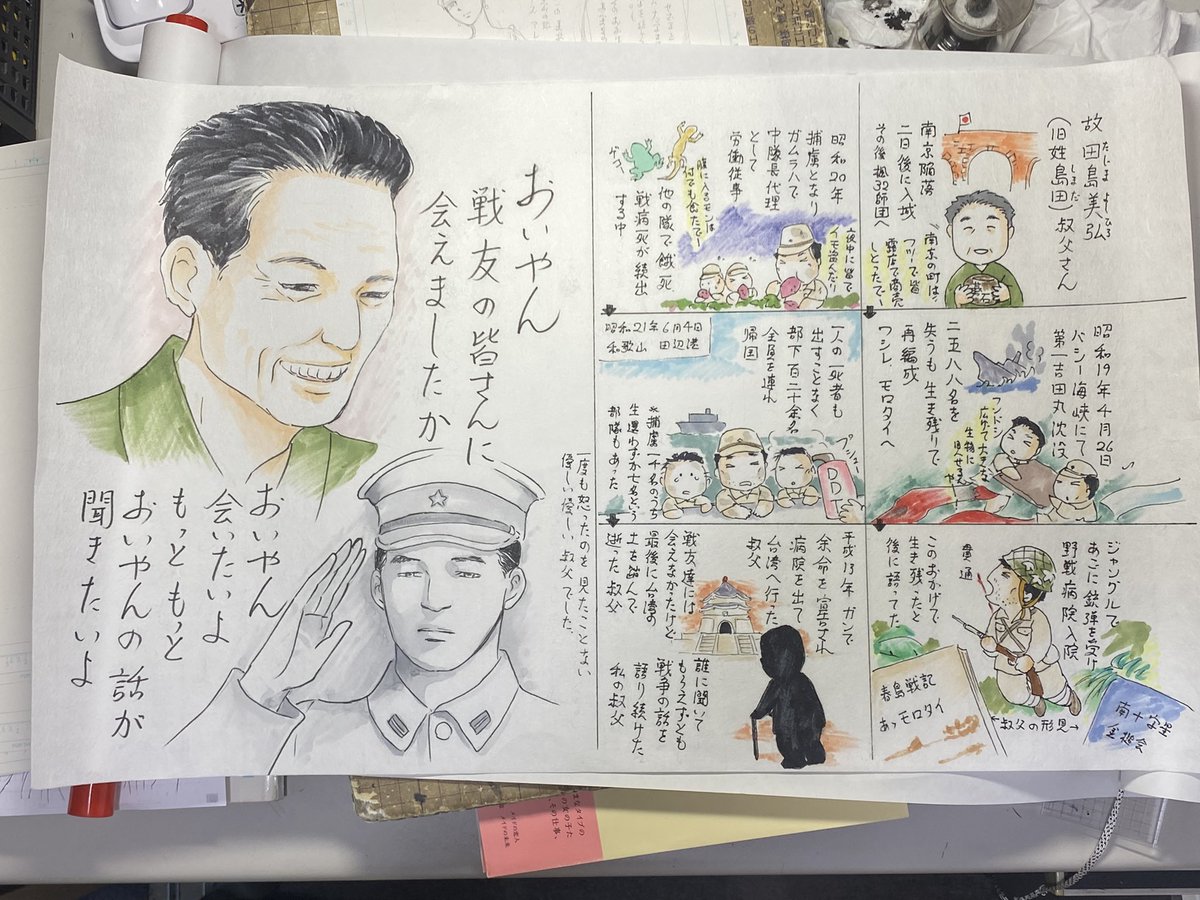 故 田島美弘
たじま よしひろ
(旧姓島田)叔父さん
しまだ
南京陥落
二日後に入城
その後楓32師団へ
「南京の町は、
フツーで皆
露店で商売
しとったでー
昭和19年4月26日
バシー海峡にて
第一吉田丸沈没
フンドシ
広げて大きな
生物に
見せるんや
二五八八名を
失うも生き残りで
再編成
ワシレ、モロタイへ
ジャングルで
あごに銃弾を受け
野戦病院入院
貫通
このおかげで
生き残ったと
後に語ってた
春島戦記
あゝモロタイ
←叔父の形見→
南十字星
昭和20年
捕虜となり
ガムラハで
中隊長代理
として
労働従事
夜中に皆で
イモ盗んだり
腹に入るモンは
何でも食たでー
ゲコ
他の隊で餓死
戦病死が続出
する中
一人の死者も
出すことなく
部下百二十余名
全員を連れ
帰国
昭和21年6月4日
和歌山 田辺港
※捕虜一千名のうち
生還わずか七名という
部隊もあった
DDT
平成13年 ガンで
余命を宣告され
病院を出て
台湾へ行った
叔父
戦友達には
会えなかたけど
最後に台湾の
土を踏んで、
逝った叔父
誰に聞いて
もらえずとも
戦争の話を
語り続けた
私の叔父
おいやん
戦友の皆さんに
会えましたか
一度も怒ったのを見たことない
優しい優しい叔父でした。
おいやん
会いたいよ
もっともっと
おいやんの話が
聞きたいよ
はなタイプの
の女の子た
、その仕事、